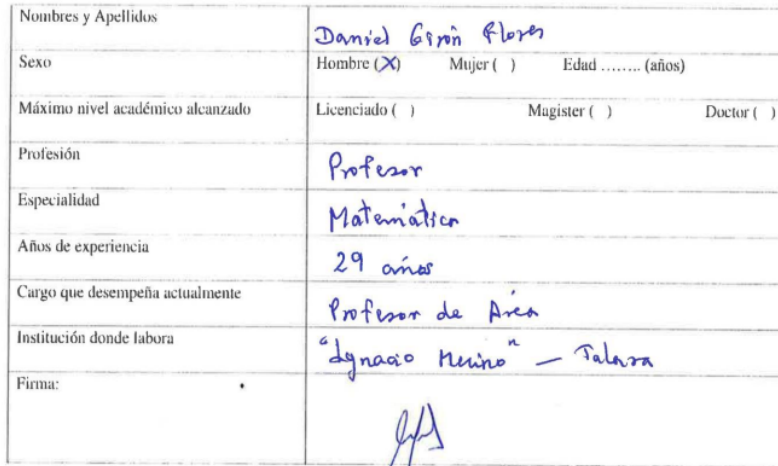 Nombres y Apellidos Daniel Girón Flores
Sexo Hombre (X) Mujer ( ) Edad ........ (años)
Máximo nivel académico alcanzado Licenciado ( ) Magister ( ) Doctor ( )
Profesión Profesor
Especialidad Matemática
Años de experiencia 29 años
Cargo que desempeña actualmente Profesor de Área
Institución donde labora "Ignacio Merino" — Talara
Firma: